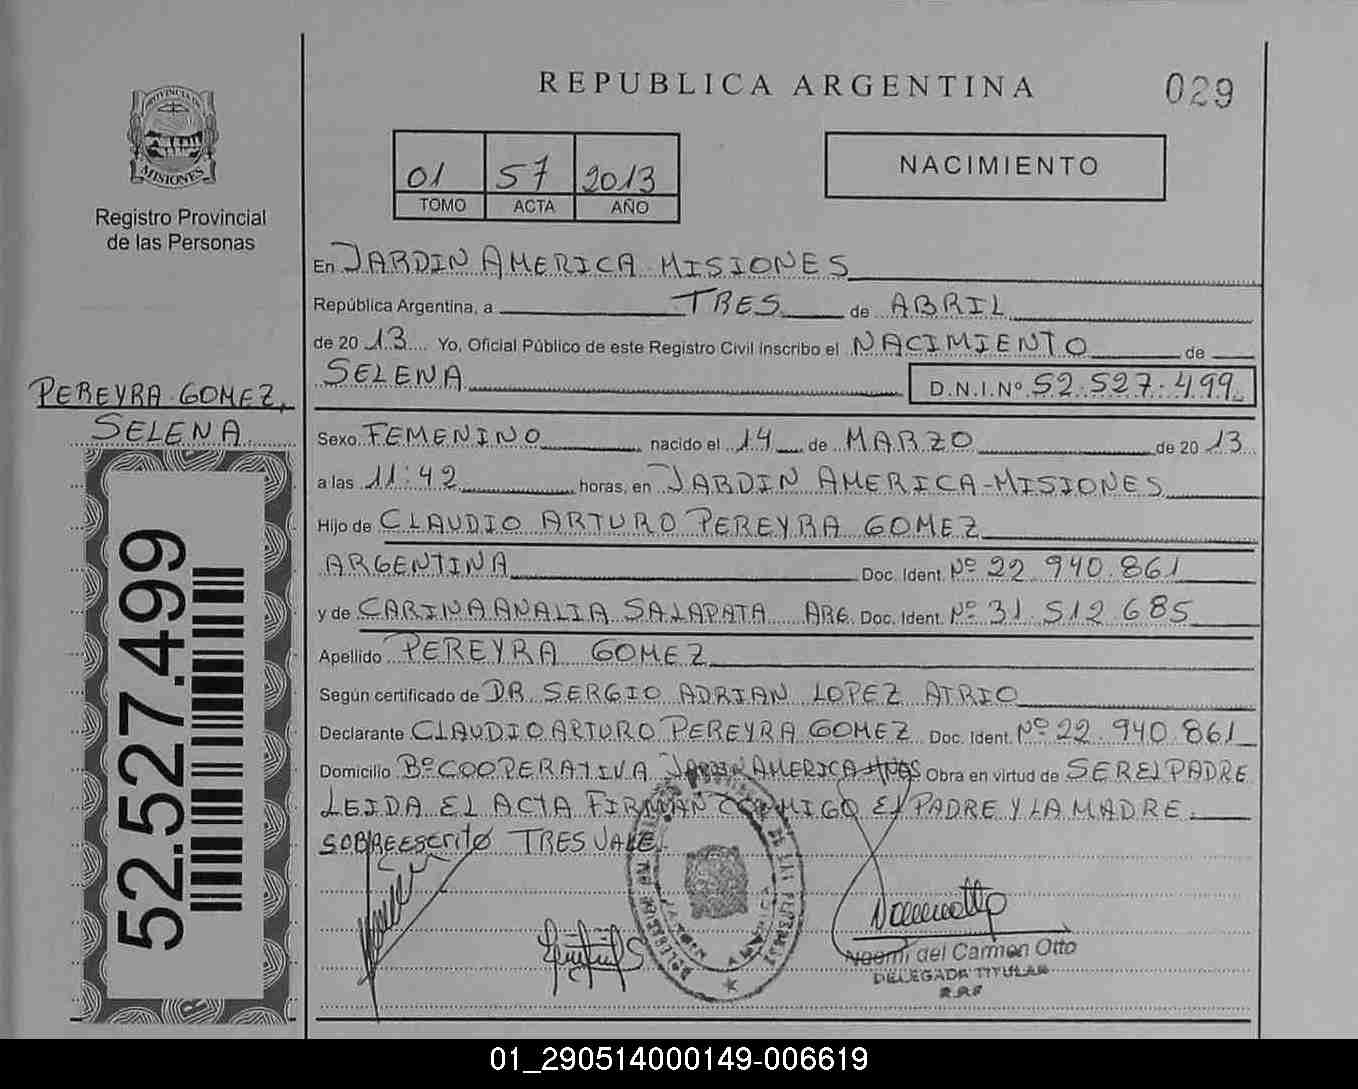 REPUBLICA ARGENTINA
029
PROVINCIA DE
MISIONES
Registro Provincial
de las Personas
01 57 2013
TOMO ACTA AÑO
NACIMIENTO
En JARDIN AMERICA MISIONES
República Argentina, a TRES de ABRIL
de 20 13 Yo, Oficial Público de este Registro Civil inscribo el NACIMIENTO de
SELENA
D.N.I.Nº 52.527.499
PEREYRA GOMEZ,
SELENA
Sexo FEMENINO nacido el 14 de MARZO de 20 13
a las 11:42 horas, en JARDIN AMERICA-MISIONES
Hijo de CLAUDIO ARTURO PEREYRA GOMEZ
ARGENTINA Doc. Ident. Nº 22.940.861
y de CARINA ANALIA SALAPATA ARG. Doc. Ident. Nº 31.512.685
Apellido PEREYRA GOMEZ
Según certificado de DR. SERGIO ADRIAN LOPEZ ATRIO
Declarante CLAUDIO ARTURO PEREYRA GOMEZ Doc. Ident. Nº 22.940.861
Domicilio Bº COOPERATIVA JARDIN AMERICA Obra en virtud de SER EL PADRE
LEIDA EL ACTA FIRMAN CONMIGO EL PADRE Y LA MADRE.
SOBREESCRITO TRES VALE.
52.527.499
Noemi del Carmen Otto
DELEGADA TITULAR
01_290514000149-006619